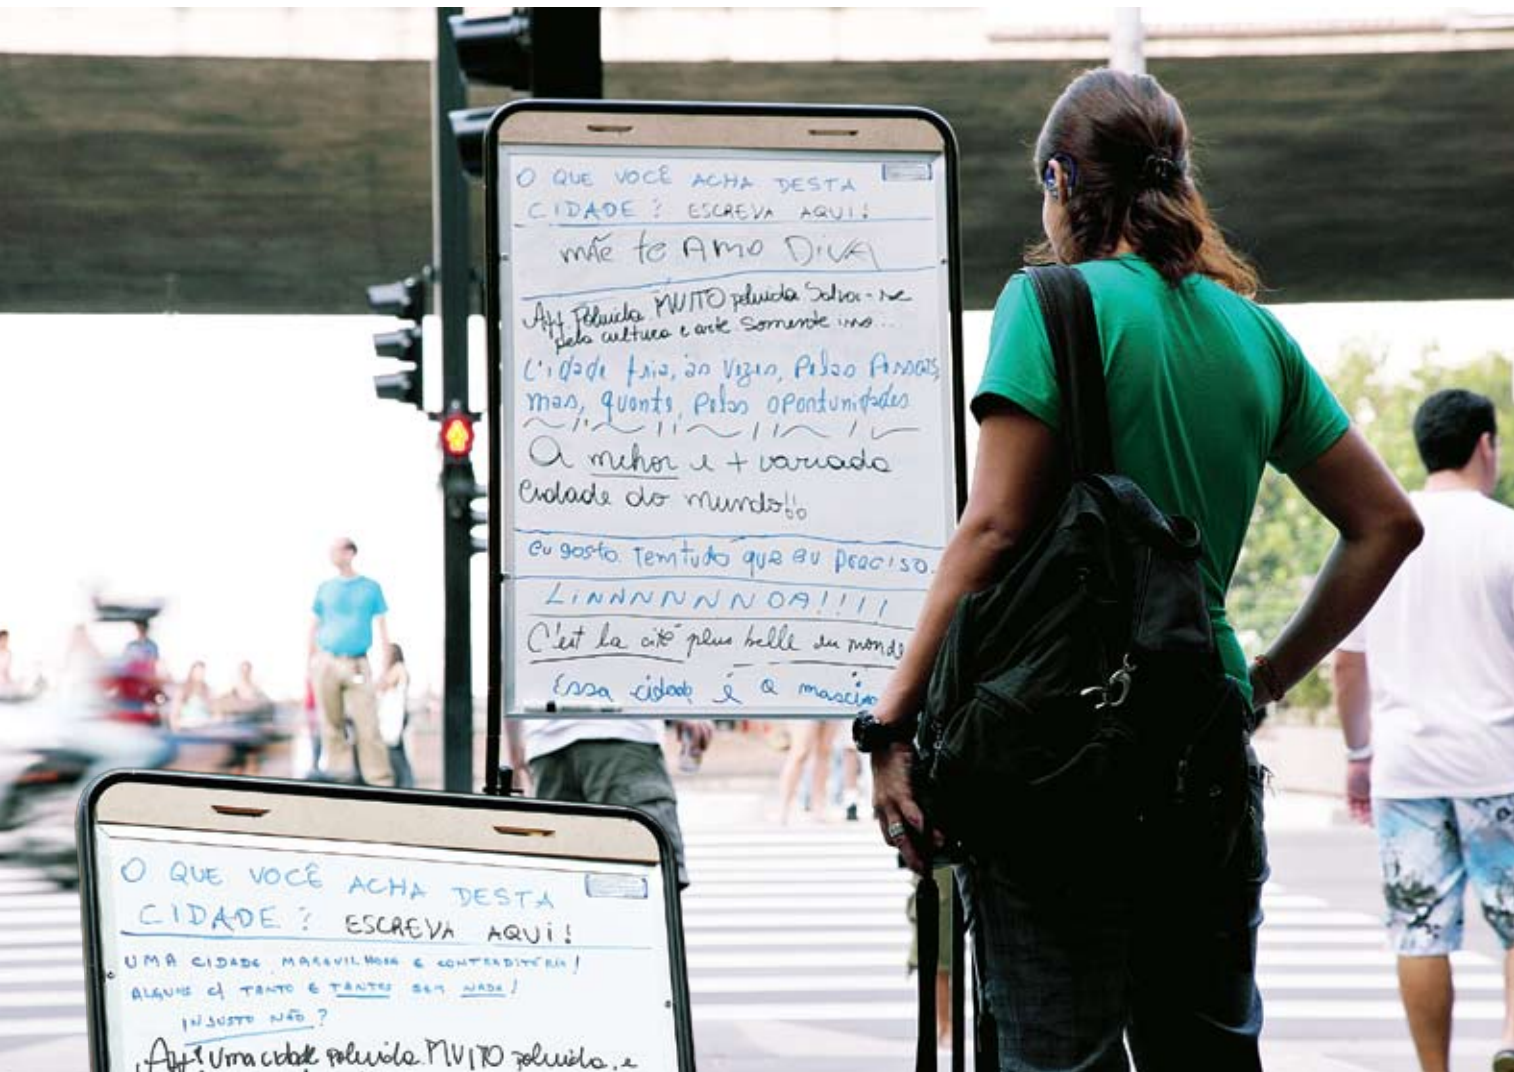 O QUE VOCÊ ACHA DESTA
CIDADE? ESCREVA AQUI!
mÃe te AMO DIVA
Aff Poluida MUITO poluida Salva-se
pela cultura e arte Somente isso...
Cidade fria, às vezes, Pelas Pessoas,
mas, quente, Pelas oportunidades
A melhor e + variada
Cidade do mundo!!
eu gosto. Tem tudo que eu preciso.
LINNNNNNDA!!!!
C'est la cité plus belle du monde
Essa cidade é a
O QUE VOCÊ ACHA DESTA
CIDADE? ESCREVA AQUI!
UMA CIDADE MARAVILHOSA E CONTRADITÓRIA!
ALGUNS C/ TANTO E TANTOS SEM NADA!
INJUSTO NÃO?
Aff! Uma cidade poluida. MUITO poluida, e